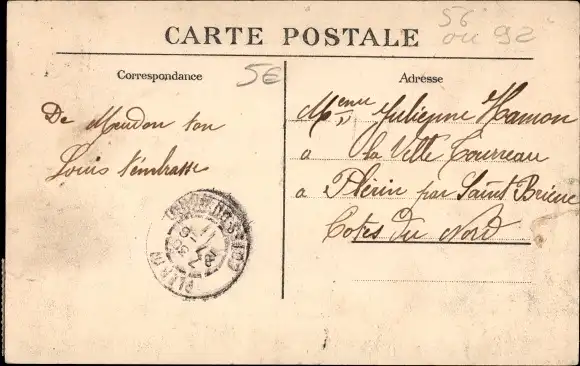 56
ou 92
CARTE POSTALE
Correspondance
5€
Adresse
De Meudon ton
Louis t'embrasse
Mme Julienne Hamon
a la Ville Tourreau
a Plérin par Saint Brieuc
Cotes du Nord
PLERIN